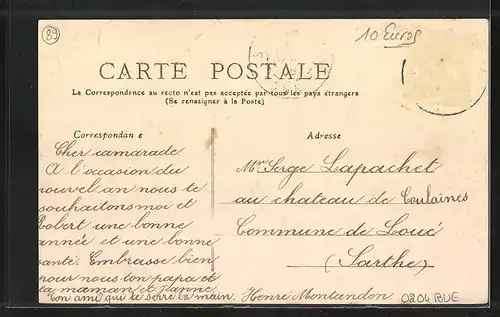 89
10 Euros
CARTE POSTALE
La Correspondance au recto n'est pas acceptée par tous les pays étrangers
(Se renseigner à la Poste)
Correspondan e
Adresse
Cher camarade.
A l'occasion du
nouvel an nous te
souhaitons moi et
Robert une bonne
année et une bonne
santé. Embrasse bien
pour nous ton papa et
ta maman et Jeanne.
Ton ami qui te serre la main. Henri Montandon
Mr Serge Lapachet
au chateau de Coulaines
Commune de Loué
(Sarthe)
0204 BUE